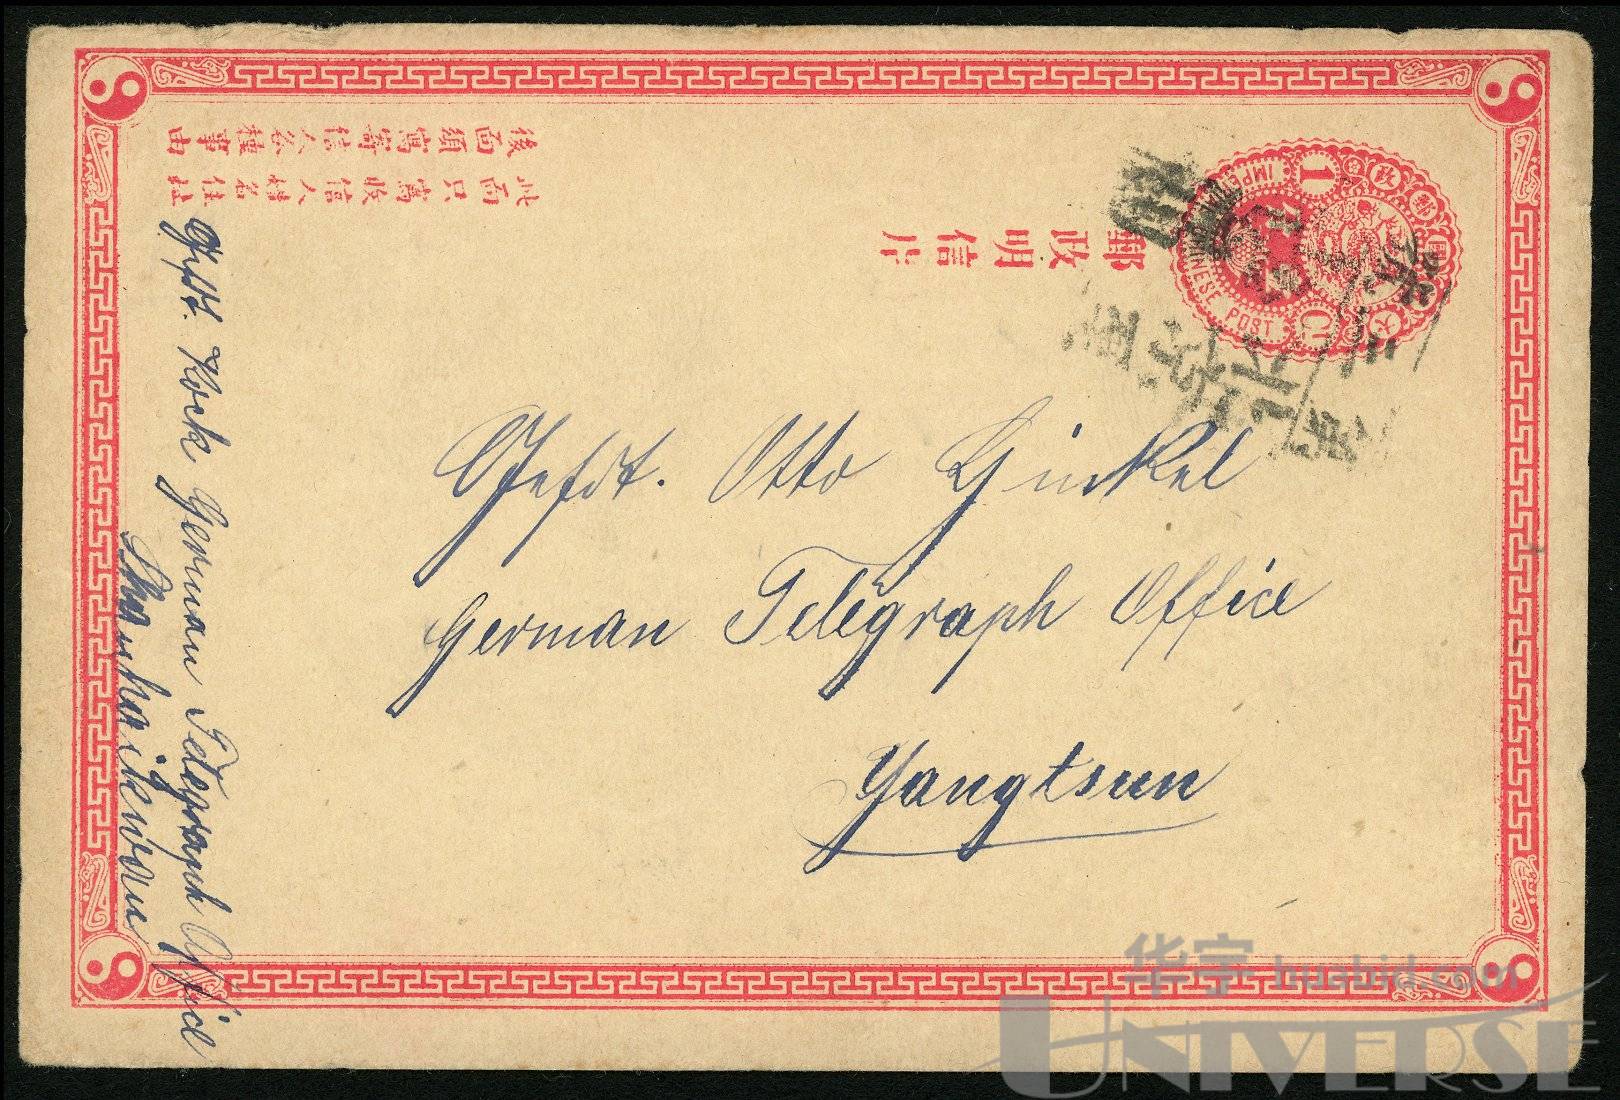 後面須寫寄信人各種事由
此面只寫收信人姓名住址
郵政明信片
大 國郵政
IMPERIAL CHINESE POST
1 C
Gefdt. Otto Ginkel
German Telegraph Office
Yangtsun
Kock German Telegraph Office
Shanhaikwan
华宇 huabid.com
UNIVERSE